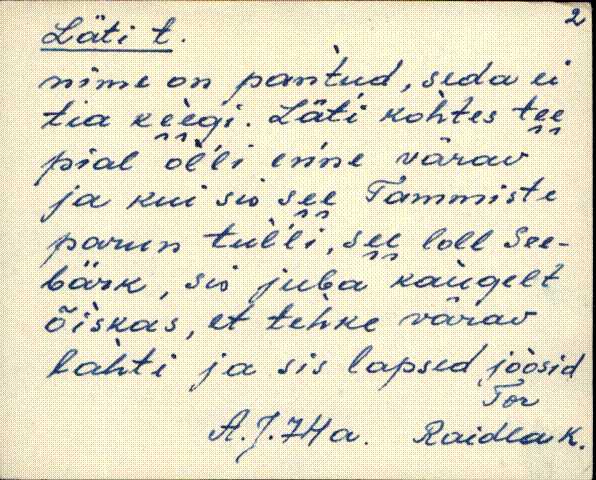 2
Läti t.
nime on pantud, seda ei
tia kèègi. Läti kòhtes tee
pial òl'li en'ne värav
ja kui sis see Tammiste
parun tul'li, see loll See-
bärk, sis juba kaùgelt
õìskas, et tehke värav
làhti ja sis lapsed jòòsid
Tor
A.J. 74 a. Raidla k.